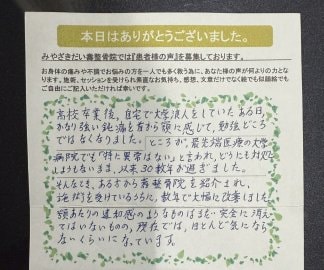 本日はありがとうございました。
みやざきだい轟整骨院では『患者様の声』を募集しております。
お身体の痛みや不調でお悩みの方を一人でも多く救う為に、あなた様の声が何よりの力と
なります。施術、セッションを受けられ率直なお気持ち、感想、文章だけでなく絵でも似顔絵でも
ご自由にご記入いただければ幸いです。
高校卒業後、自宅で大学浪人をしていたある日、
かなり強い鈍痛を首から頭に感じて、勉強どころ
ではなくなりました。ところが、最先端医療の大学
病院でも「特に異常はない」と言われ、どうにも対処
しようもないまま、以来30数年が過ぎました。
そんなとき、ある方から轟整骨院を紹介され、
施術を受けているうちに、数年で大幅に改善しました。
頭あたりの違和感のようなものはまだ完全に消えて
はいないものの、現在では、ほとんど気になら
ないくらいになっています。